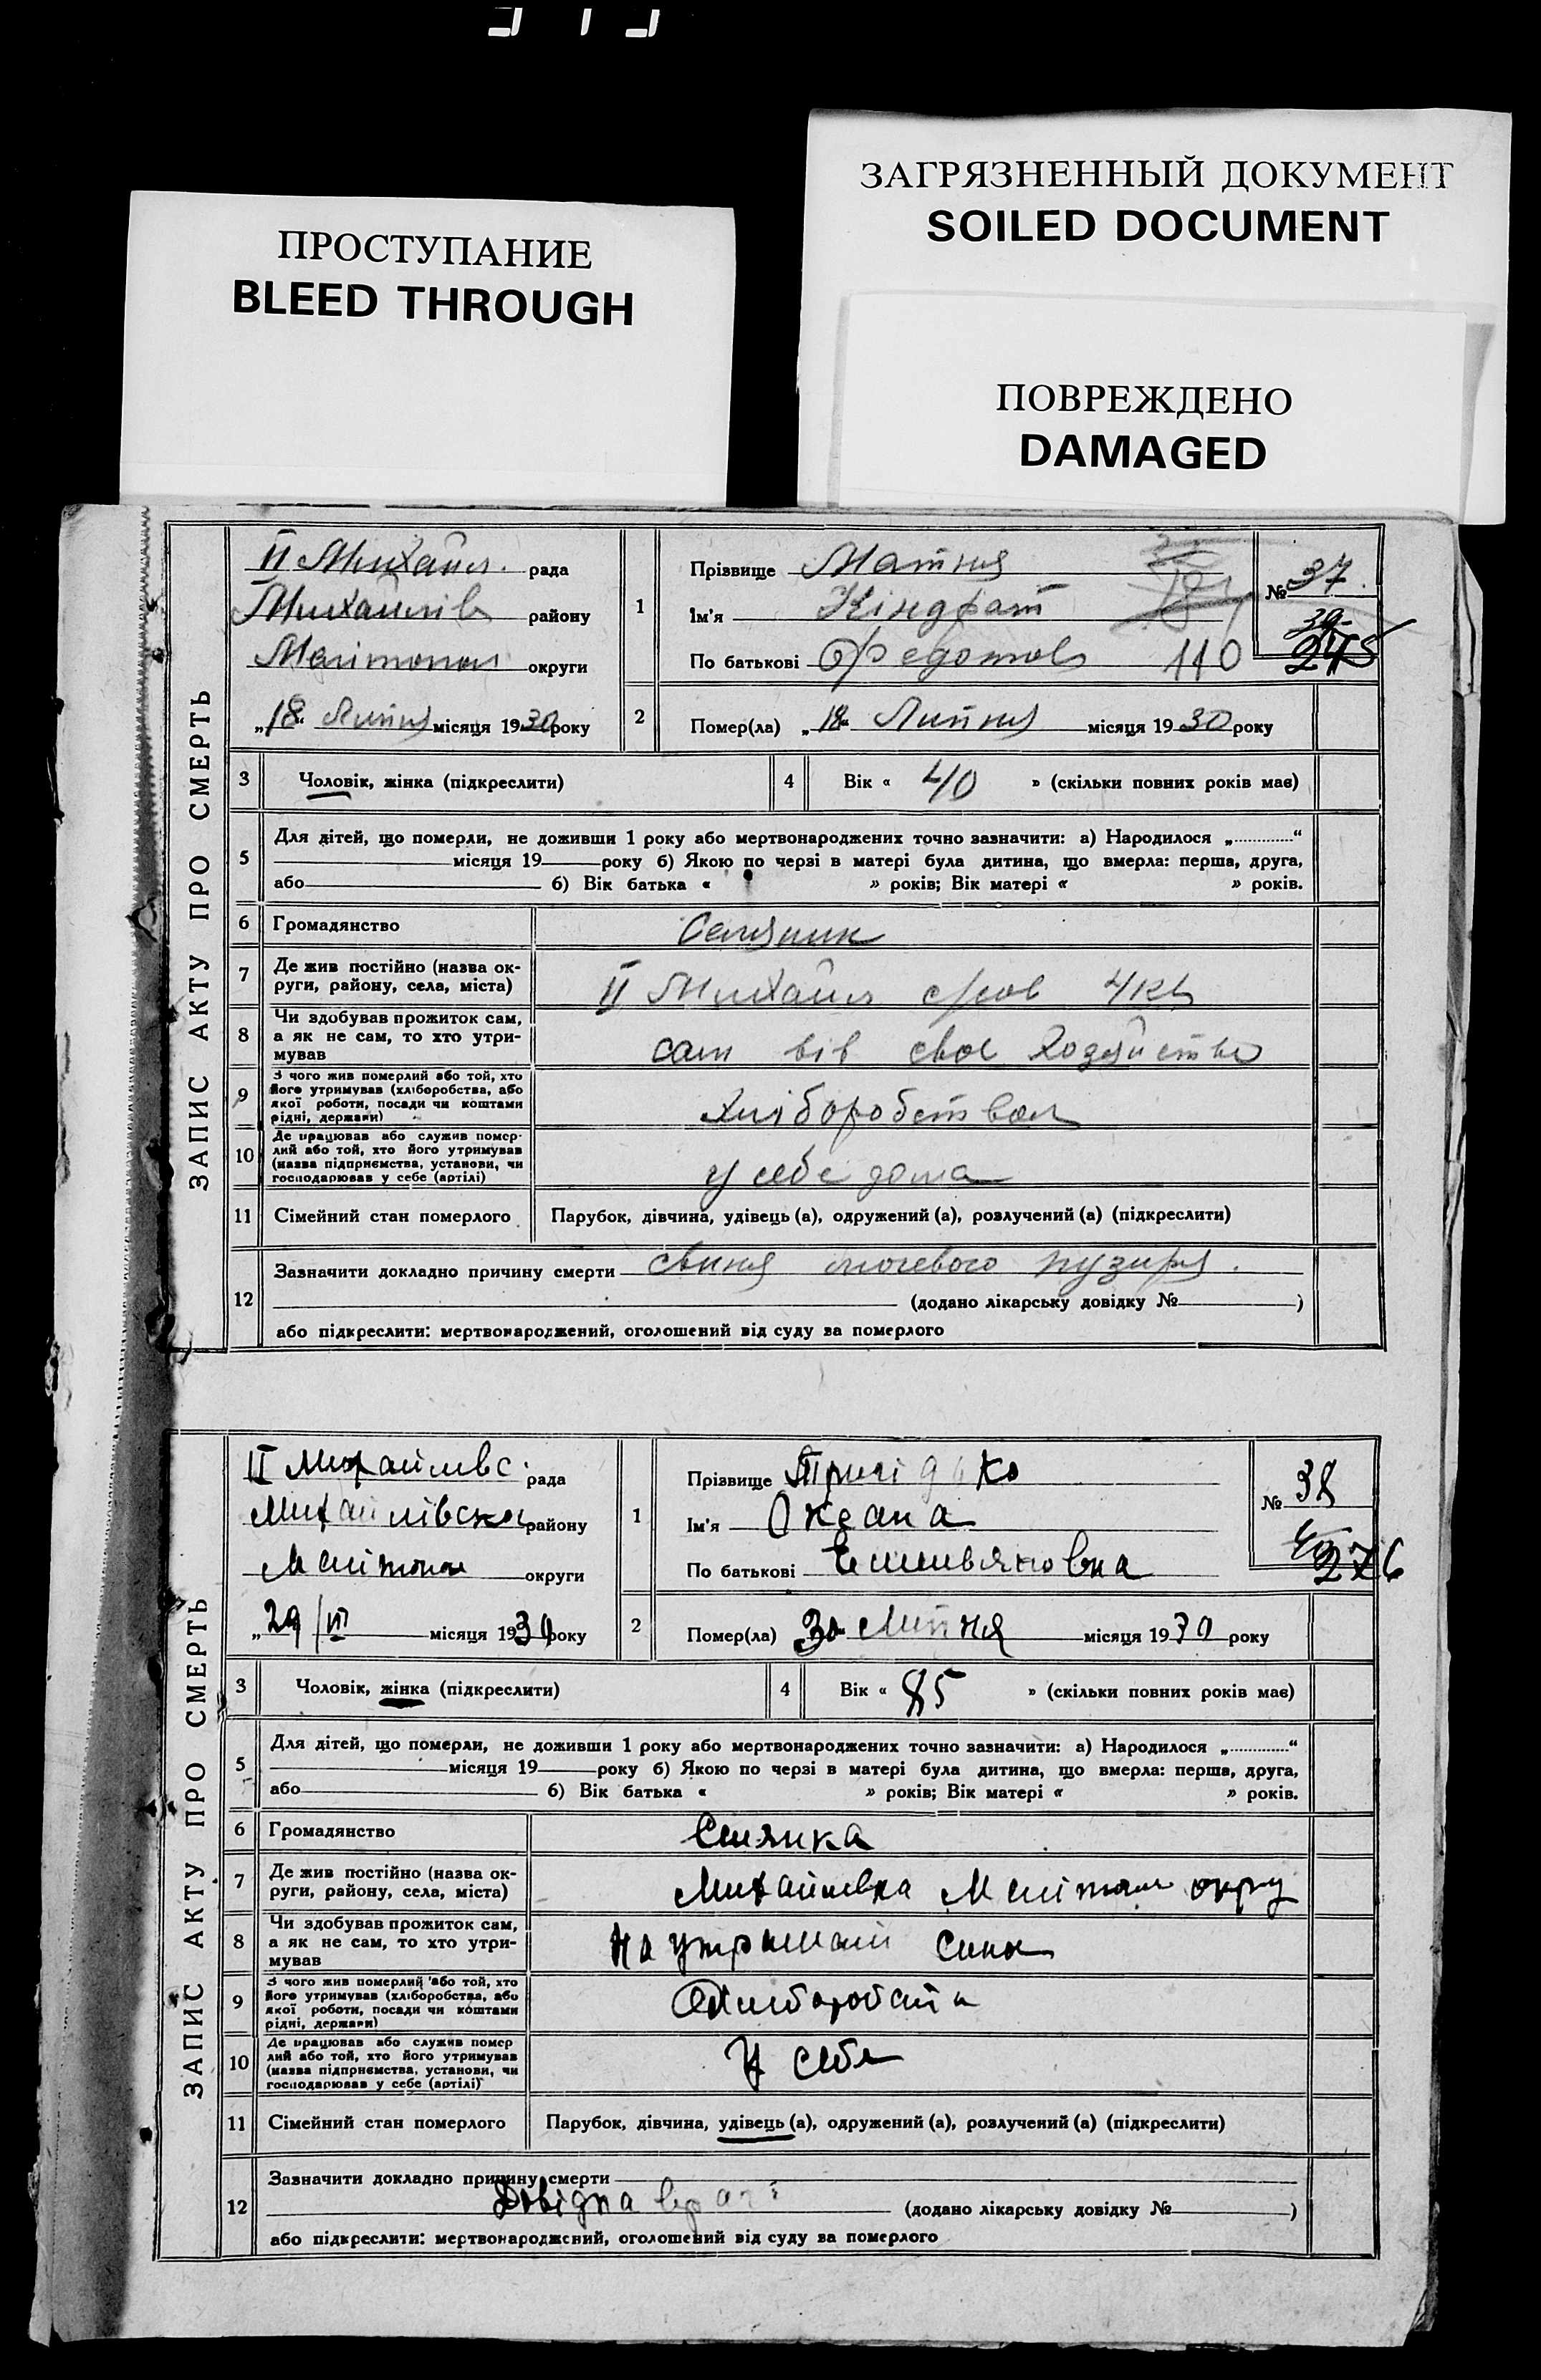 ЗАГРЯЗНЕННЫЙ ДОКУМЕНТ
SOILED DOCUMENT
ПРОСТУПАНИЕ
BLEED THROUGH
ПОВРЕЖДЕНО
DAMAGED
ЗАПИС АКТУ ПРО СМЕРТЬ
II Михайл. рада
Михайлів району
Мелітопол округи
„18" Липня місяця 1930 року
1
Прізвище Матня
Ім'я Кіндрат
По батькові Федотов 110
№ 37
39
275
2
Помер(ла) „18" Липня місяця 1930 року
3 Чоловік, жінка (підкреслити)
4 Вік « 40 » (скільки повних років має)
5 Для дітей, що померли, не доживши 1 року або мертвонароджених точно зазначити: а) Народилося „ “
місяця 19 року б) Якою по черзі в матері була дитина, що вмерла: перша, друга,
або б) Вік батька « » років; Вік матері « » років.
6 Громадянство Селяник
7 Де жив постійно (назва ок-
руги, району, села, міста)
II Михайл
8 Чи здобував прожиток сам,
а як не сам, то хто утри-
мував
сам вів своє хозяйство
9 З чого жив померлий або той, хто
його утримував (хліборобства, або
якої роботи, посади чи коштами
рідні, держави)
хліборобством
10 Де працював або служив помер-
лий або той, хто його утримував
(назва підприємства, установи, чи
господарював у себе (артілі)
у себе дома
11 Сімейний стан померлого Парубок, дівчина, удівець (а), одружений (а), розлучений (а) (підкреслити)
12 Зазначити докладно причину смерти мочевого пузиря.
(додано лікарську довідку № )
або підкреслити: мертвонароджений, оголошений від суду за померлого
ЗАПИС АКТУ ПРО СМЕРТЬ
II Михайлівс. рада
Михайлівська району
Мелітопол округи
„29/VII місяця 1930 року
1
Прізвище
Ім'я Оксана
По батькові Емельяновна
№ 38
276
2
Помер(ла) Липня місяця 1930 року
3 Чоловік, жінка (підкреслити)
4 Вік « 85 » (скільки повних років має)
5 Для дітей, що померли, не доживши 1 року або мертвонароджених точно зазначити: а) Народилося „ “
місяця 19 року б) Якою по черзі в матері була дитина, що вмерла: перша, друга,
або б) Вік батька « » років; Вік матері « » років.
6 Громадянство Селянка
7 Де жив постійно (назва ок-
руги, району, села, міста)
Михайлівка Мелітопол округ
8 Чи здобував прожиток сам,
а як не сам, то хто утри-
мував
На утриманні сина
9 З чого жив померлий або той, хто
його утримував (хліборобства, або
якої роботи, посади чи коштами
рідні, держави)
10 Де працював або служив помер
лий або той, хто його утримував
(назва підприємства, установи, чи
господарював у себе (артілі)
У себя
11 Сімейний стан померлого Парубок, дівчина, удівець (а), одружений (а), розлучений (а) (підкреслити)
12 Зазначити докладно причину смерти
Довідка
(додано лікарську довідку № )
або підкреслити: мертвонароджений, оголошений від суду за померлого